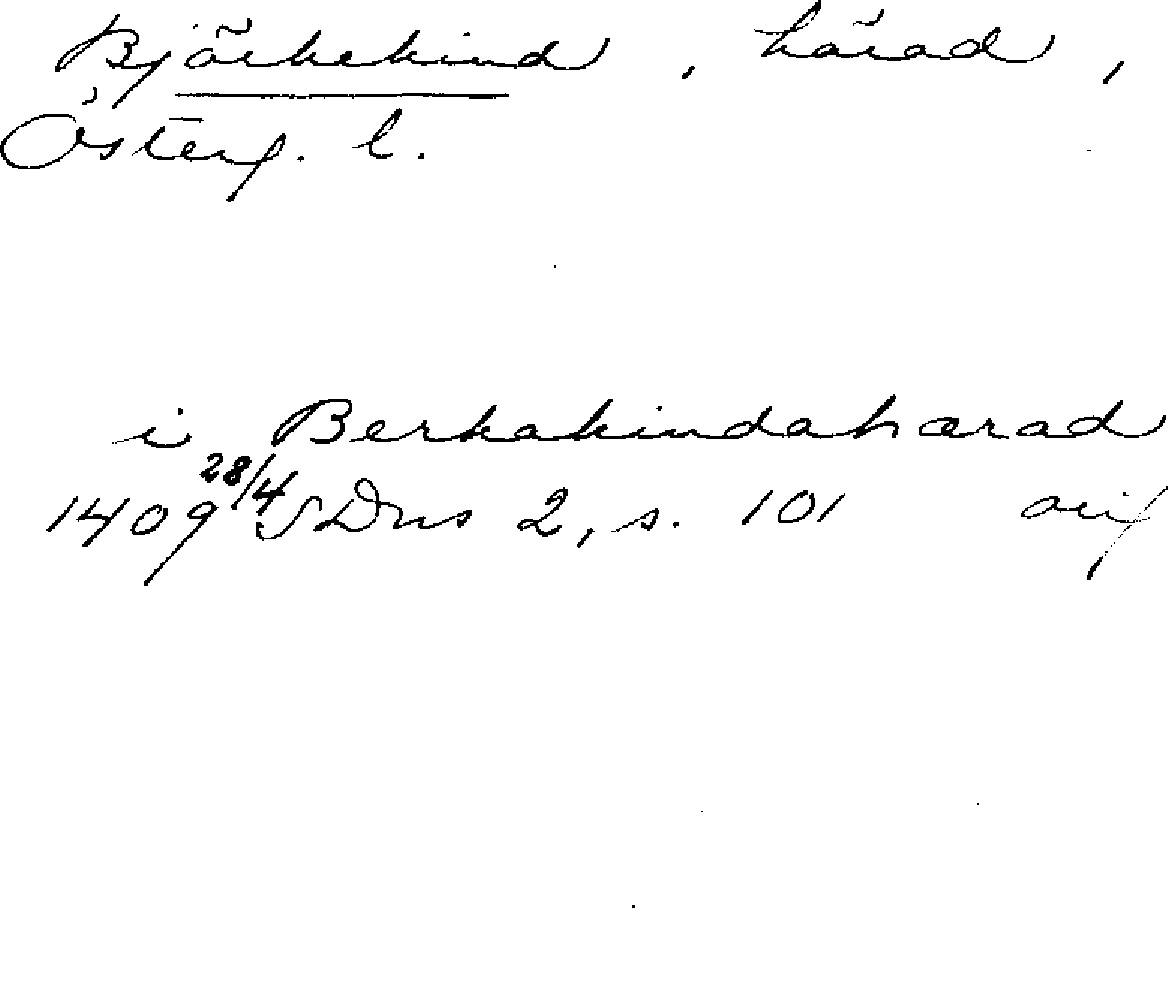 Björkekind, härad,
Österg. l.
i Berkakindahærad
1409 28/4 SDns 2, s. 101 orig